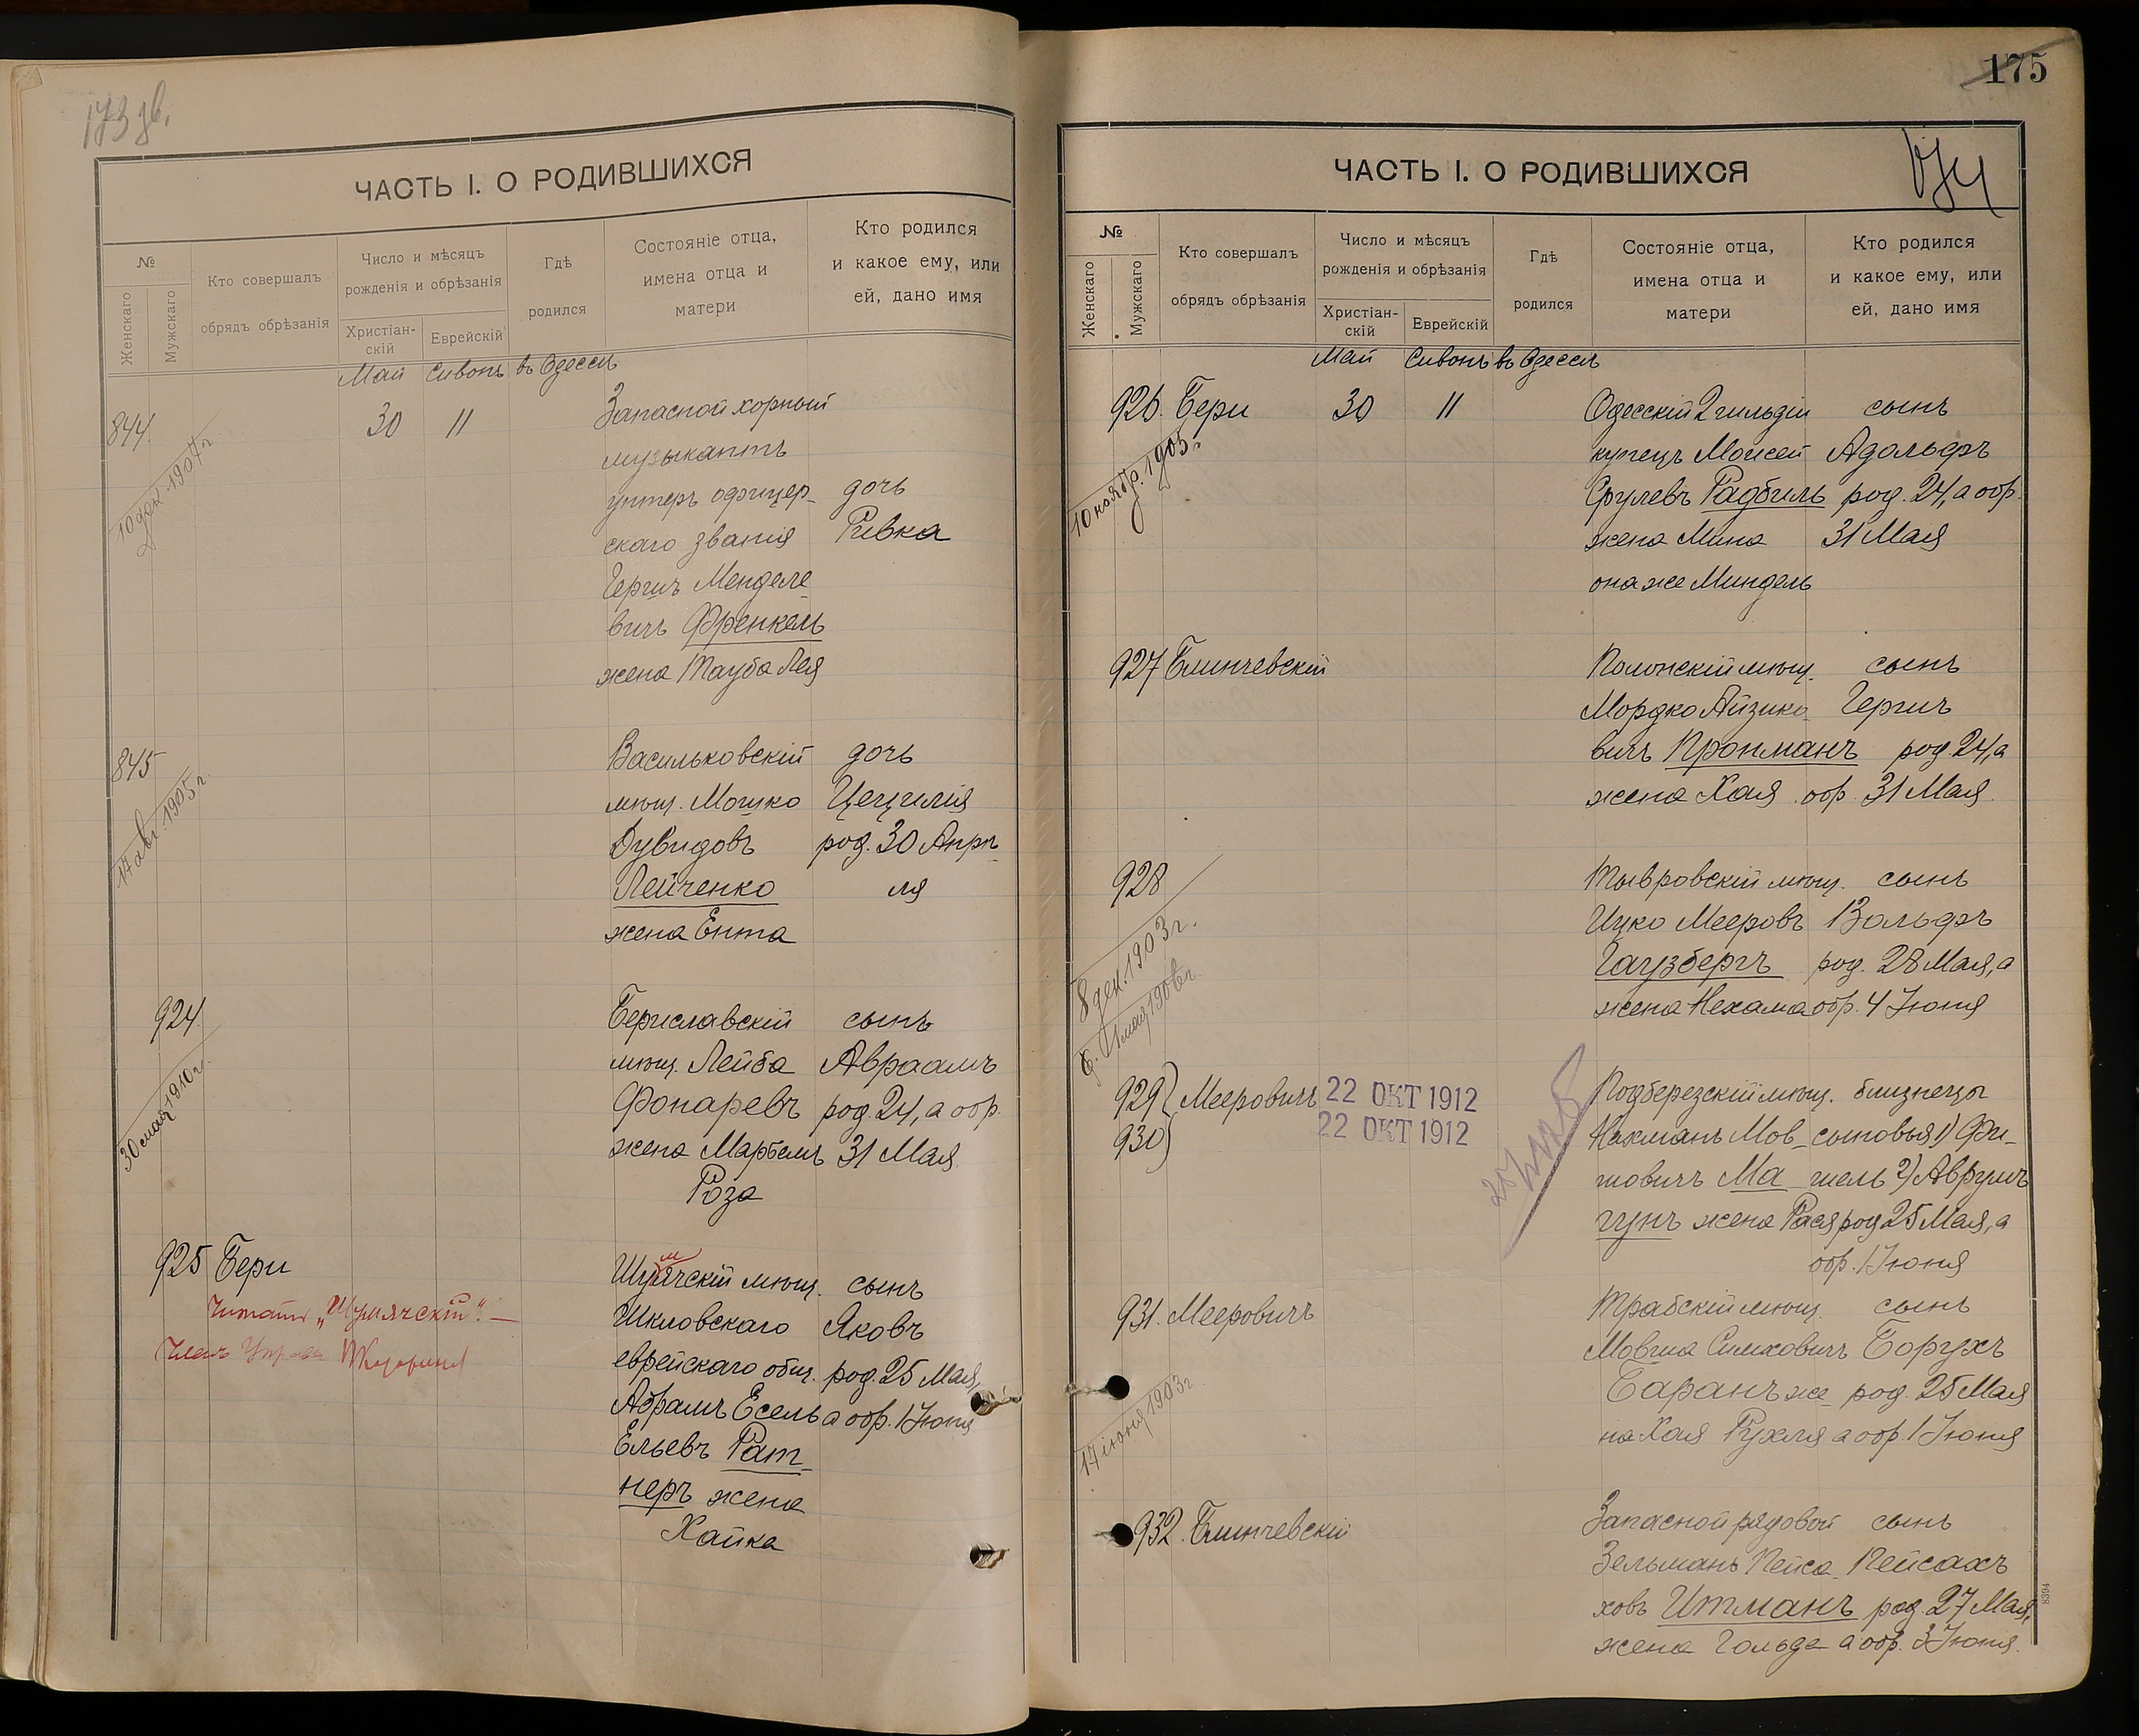 173 зв.
ЧАСТЬ I. О РОДИВШИХСЯ
№
Женскаго
Мужскаго
Кто совершалъ
обрядъ обрѣзанія
Число и мѣсяцъ
рожденія и обрѣзанія
Христіан-
скій
Еврейскій
Гдѣ
родился
Состояніе отца,
имена отца и
матери
Кто родился
и какое ему, или
ей, дано имя
Май Сивонъ въ Одессѣ
844 30 11 Запасной хорный
музыкантъ
10 дек. 1907 г.
унтеръ офицер- дочь
скаго званія Ривка
Гершъ Менделе-
вичъ Френкель
жена Тауба Лея
845 Васильковскій дочь
17 авг. 1905 г.
мѣщ. Мошко Цецилія
Дувидовъ род. 30 Апрѣ-
Лейченко ля
жена Ента
924. Бериславскій сынъ
30 мая 1910 г.
мѣщ. Лейба Авраамъ
Фонаревъ род. 24, а обр.
жена Марбемъ 31 Мая
Роза
925 Бери Шумячскій мѣщ. сынъ
Читать „Шумячскій“. —
Шкловскаго Яковъ
Членъ Управы
еврейскаго общ. род. 25 Мая,
Абрамъ Есель а обр. 1 Юня
Ельевъ Рат-
неръ жена
Хайка
175
174
ЧАСТЬ I. О РОДИВШИХСЯ
№
Женскаго
Мужскаго
Кто совершалъ
обрядъ обрѣзанія
Число и мѣсяцъ
рожденія и обрѣзанія
Христіан-
скій
Еврейскій
Гдѣ
родился
Состояніе отца,
имена отца и
матери
Кто родился
и какое ему, или
ей, дано имя
Май Сивонъ въ Одессѣ
926. Бери 30 11 Одесскій 2 гильдіи сынъ
10 ноябр. 1905 г.
купецъ Мойсей Адольфъ
Срулевъ Радбиль род. 24, а обр.
жена Мина 31 Мая
она же Миндель
927 Блинчевскій Полонскій мѣщ. сынъ
Мордко Айзико- Гершъ
вичъ Пропманъ род. 24, а
жена Хая обр. 31 Мая
928 Тывровскій мѣщ. сынъ
8 дек. 1903 г.
Ицко Мееровъ Вольфъ
Гаузбергъ род. 28 Мая, а
жена Нехама обр. 4 Юня
мая 1906 г.
929 Мееровичъ 22 ОКТ 1912 Подберезскій мѣщ. близнецы
930 22 ОКТ 1912 Нахманъ Мов- сыновья 1) Фи-
шовичъ Ма- шель 2) Аврумъ
гунъ жена Рася род 25 Мая, а
обр. 1 Юня
931. Мееровичъ Трабскій мѣщ. сынъ
17 іюня 1903 г.
Мовша Симховичъ Борухъ
Баранъ же- род. 25 Мая
на Хая Рухля а обр. 1 Юня
932. Блинчевскій Запасной рядовой сынъ
Зельманъ Пейса- Пейсахъ
ховъ Итманъ род. 27 Мая,
жена Гольда а обр. 3 Юня.
8394